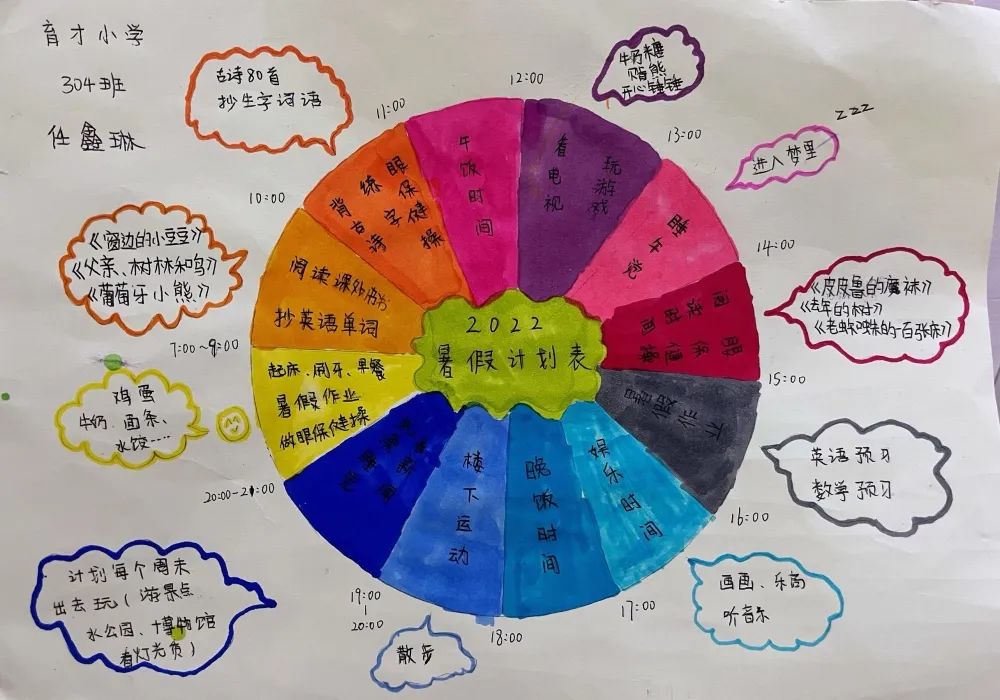 育才小学
304班
任鑫琳
古诗80首
抄生字词语
牛奶糖
贝肯熊
开心锤锤
zzz
进入梦里
《窗边的小豆豆》
《父亲、树林和鸟》
《葡萄牙小熊》
《皮皮鲁的魔袜》
《去年的树》
《老蜘蛛的一百张床》
鸡蛋
牛奶、面条、
水饺....
英语预习
数学预习
计划每个周末
出去玩(游景点
水公园、博物馆
看灯光负)
散步
画画、乐高
听音乐
12:00
13:00
14:00
15:00
16:00
17:00
18:00
19:00
20:00
20:00-21:00
7:00~9:00
10:00
11:00
2022
暑假计划表
午饭时间
看电视
玩游戏
睡午觉
阅读时间
眼保健操
作业
娱乐时间
晚饭时间
楼下运动
睡觉
起床、刷牙、早餐
暑假作业
做眼保健操
阅读课外书
抄英语单词
背古诗
练字
眼保健操